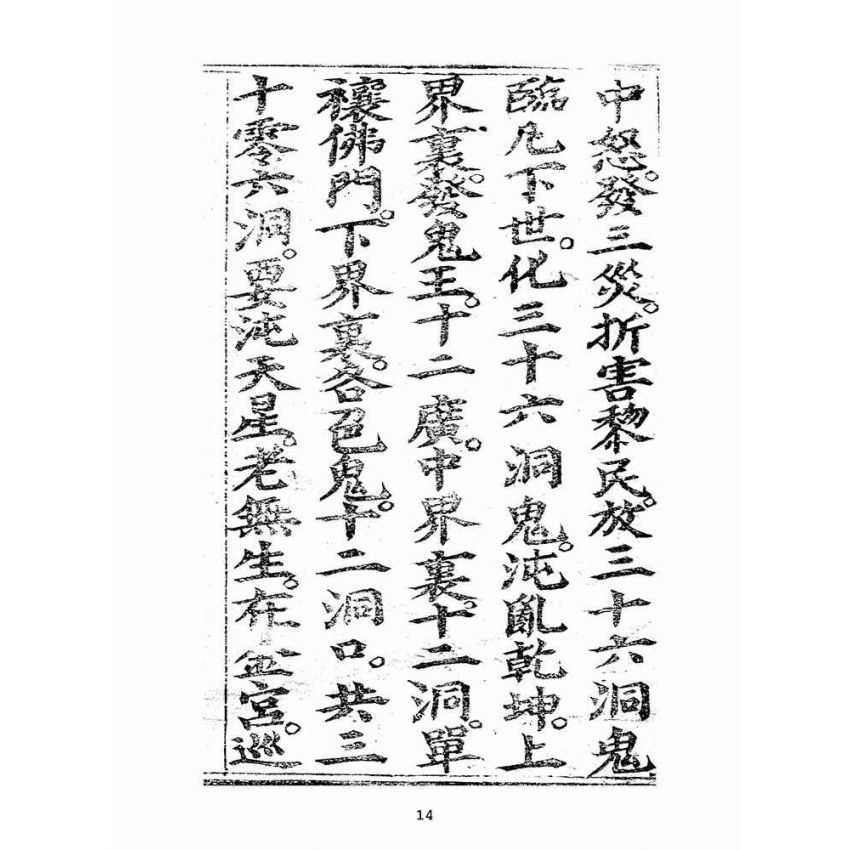 中怒。發三災。折害黎民。放三十六洞鬼
臨凡下世。化三十六洞鬼。沌亂乾坤。上
界裏。發鬼王。十二廣。中界裏。十二洞。單
穰佛門。下界裏。各色鬼。十二洞口。共三
十零六洞。要沌天星。老無生。在金宮。巡
14